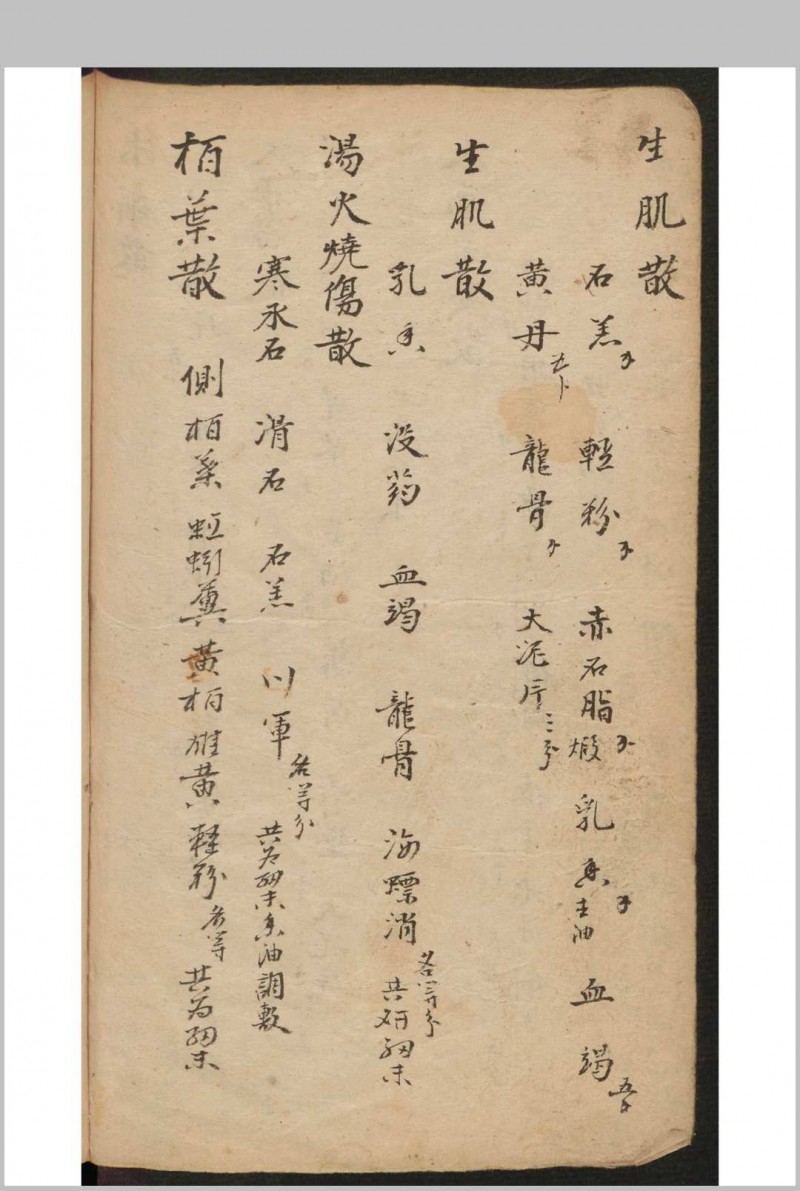 生肌散
石羔 輕粉 赤石脂煅 乳香去油 血竭五
黄丹五 龍骨 大泥片三分
生肌散
乳香 没药 血竭 龍骨 海螵消各等分共研細末
湯火燒傷散
寒水石 滑石 石羔 川軍各等分共为細末香油調敷
栢葉散 側栢葉 蚯蚓糞 黄栢 雄黄 輕粉各等共为細末